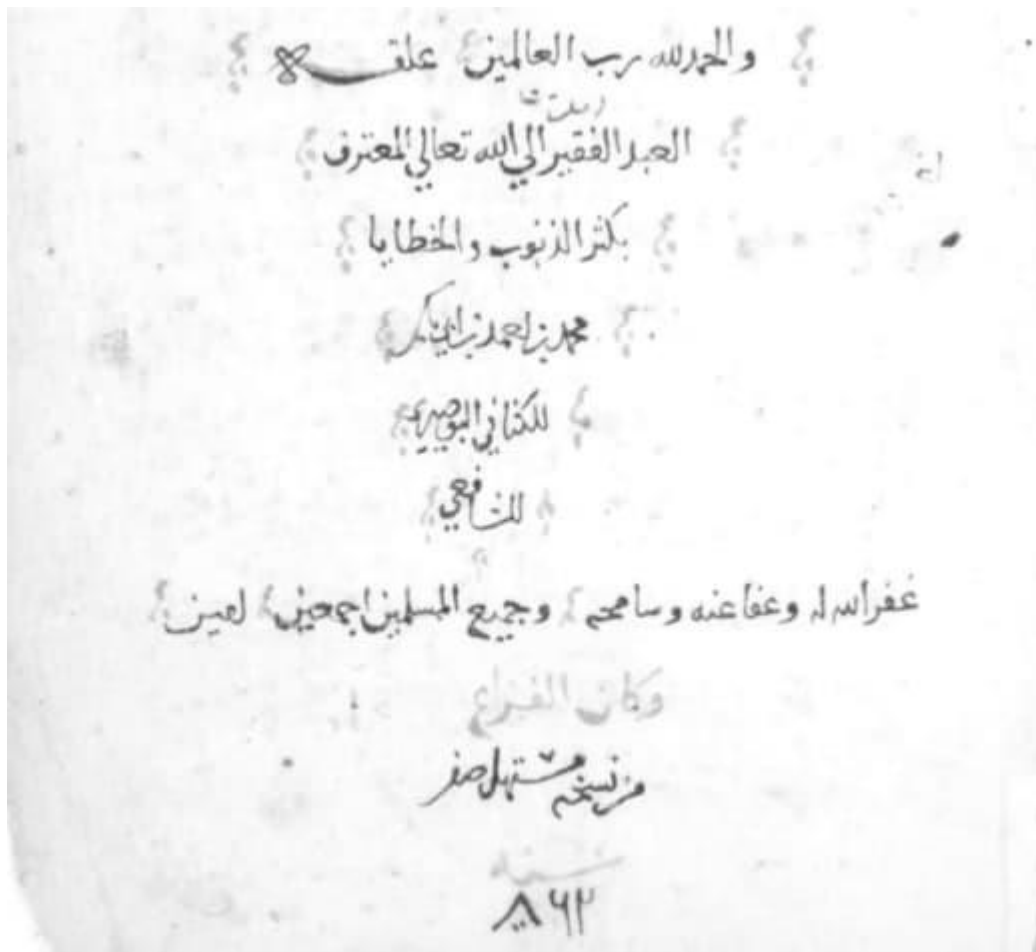 والحمد لله رب العالمين علقه
العبد الفقير الي الله تعالي المعترف
بكثر الذنوب والخطايا
محمد بن احمد بن ابي بكر
الكناني البوصيري
الشافعي
غفر الله له وعفا عنه وسامحه وجميع المسلمين اجمعين امين
وكان الفراغ
من نسخه مستهل صفر
سنة
٨٦٢